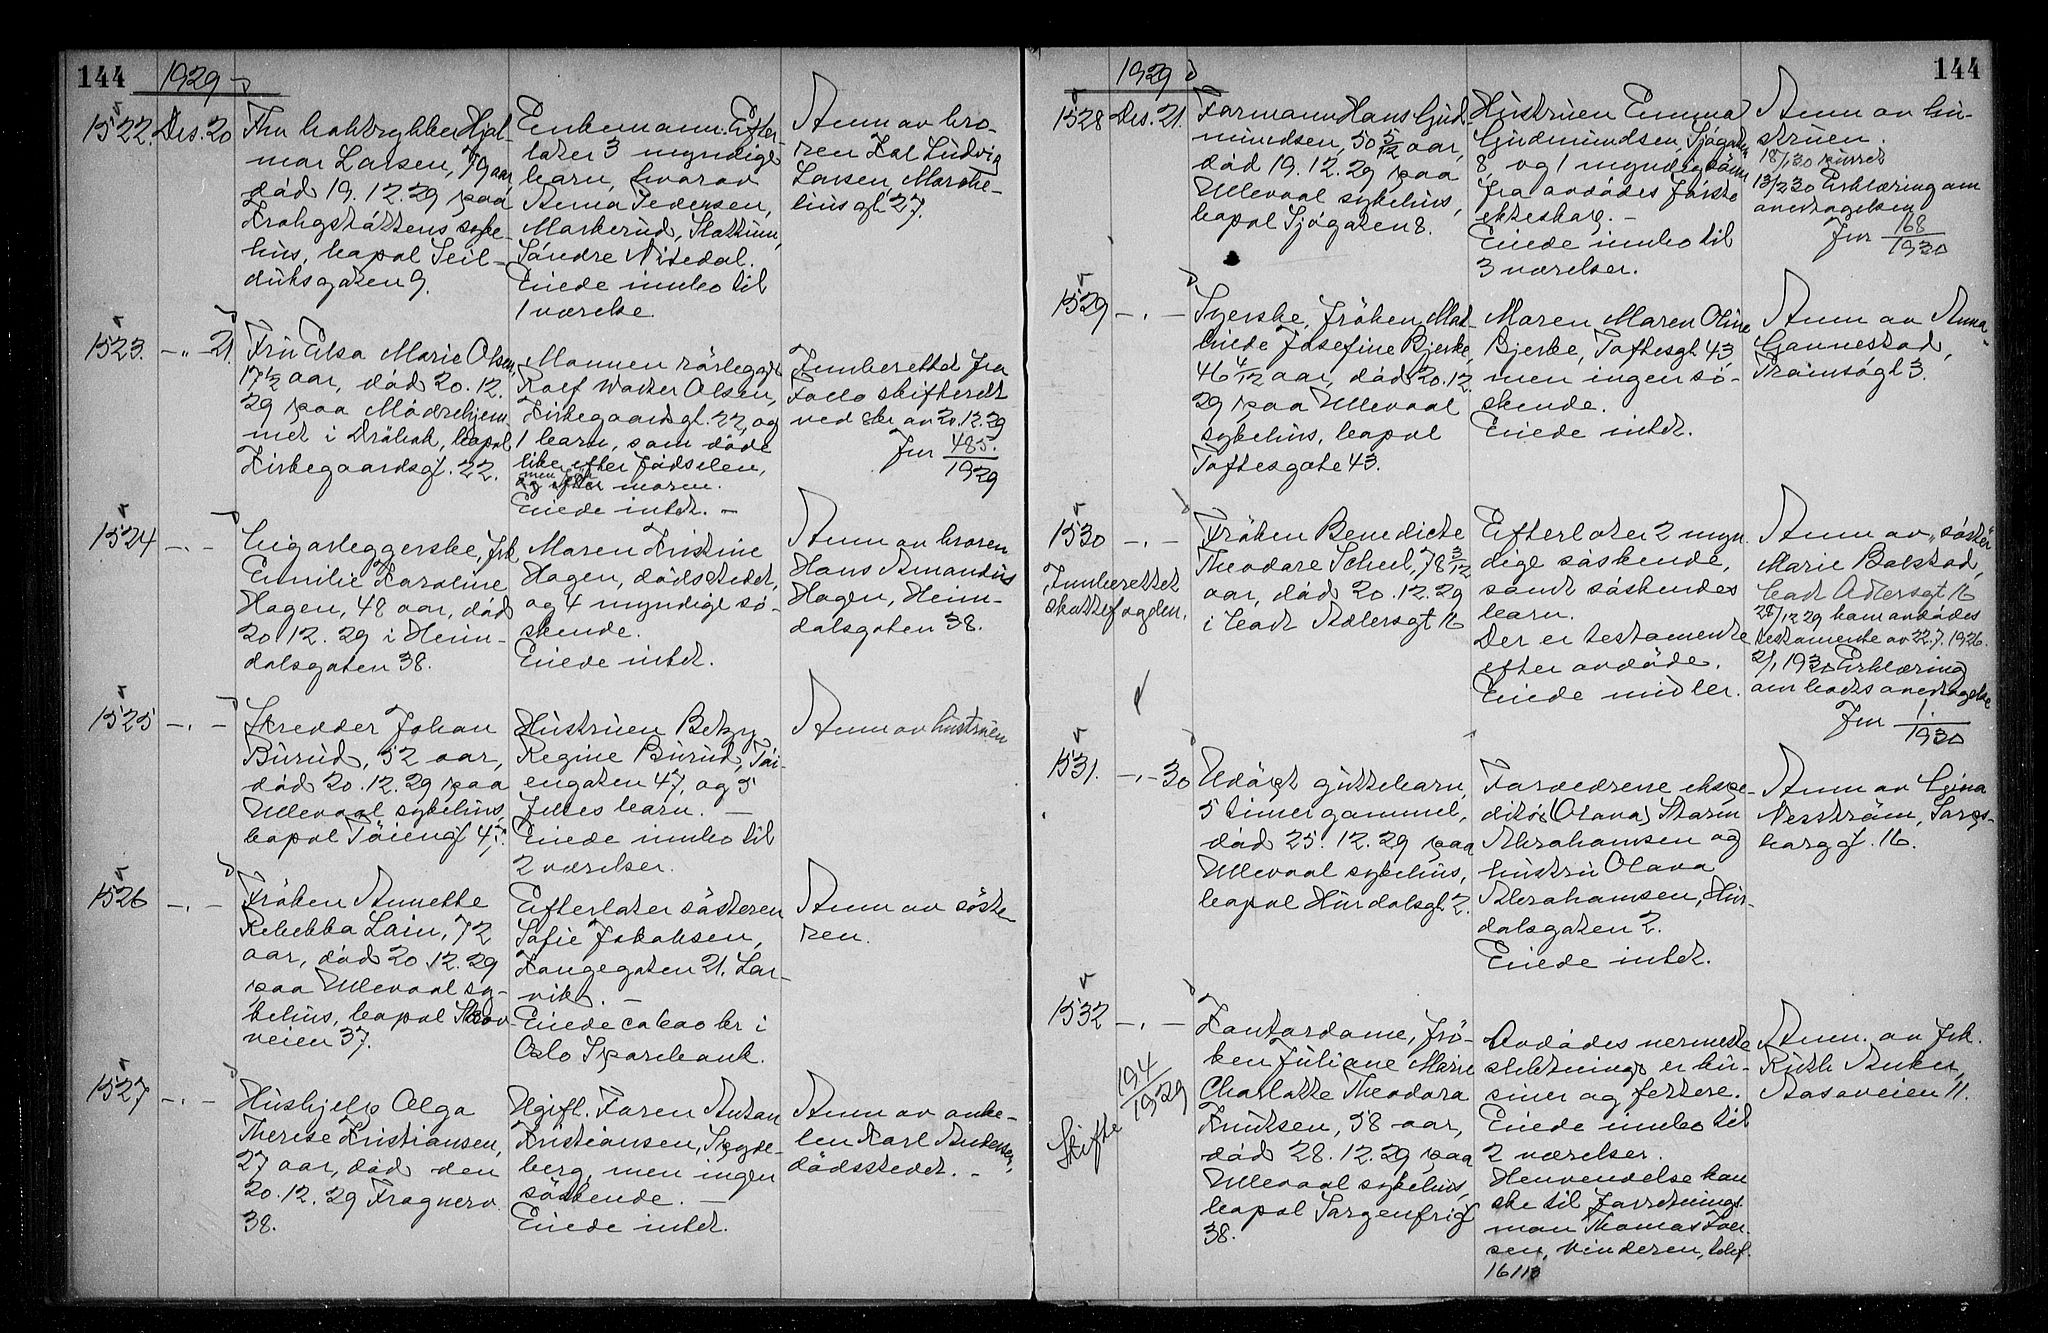 144
1929
1522. Des. 20
Fhv boktrykker Hjal-
mar Larsen, 79 aar,
död 19.12.29 paa
Krohgstöttens syke-
hus, bopæl Seil-
duksgaten 9.
Enkemann. Efter-
later 3 myndige
barn, hvorav
Anna Pedersen,
Markerud, Slattum,
Söndre Nitedal.
Eiede innbo til
1 værelse
Anm av bro-
ren Kal Ludvig
Larsen, Marselie-
liusgt 27.
1523. -"- 21.
Fru Elsa Marie Olsen,
17 1/2 aar, död 20.12.
29 paa Mödrehjem-
met i Dröbak, bopæl
Kirkegaardsgt. 22.
Mannen rörlegger
Rolf Walter Olsen,
Kirkegaardsgt. 22, og
1 barn, som döde
like efter födselen,
moren.
Eiede intet. -
Innberettet fra
Follo skifterett
ved skr av 20.12.29
Jnr 485.
1929
1524 -"-
Cigarleggerske, frk
Emilie Karoline
Hagen, 48 aar, död
20.12.29 i Heim-
dalsgaten 38.
Moren Kristine
Hagen, dödsstedet,
og 4 myndige sö-
skende.
Eiede intet.
Anm av broren
Hans Amandus
Hagen, Heim-
dalsgaten 38.
1525 -"-
Skredder Johan
Burud, 52 aar,
död 20.12.29 paa
Ullevaal sykehus,
bopæl Töiengt 47.
Hustruen Betzy
Regine Burud, Töi-
engaten 47, og 5
felles barn. -
Eiede innbo til
2 værelser.
Anm av hustruen
1526 -"-
Fröken Annette
Rebekka Lain, 72
aar, död 20.12.29
paa Ullevaal sy-
kehus, bopæl Skov-
veien 37.
Efterlater sösteren
Sofie Jakobsen,
Langegaten 21, Lar-
vik. -
Eiede ca 600 kr i
Oslo Sparebank.
Anm av söste-
ren.
1527 -"-
Hushjelp Olga
Therese Kristiansen,
27 aar, död den
20.12.29 Frognerv.
38.
Ugift. Faren Anton
Kristiansen, Spyde-
berg, men ingen
söskende. -
Eiede intet.
Anm av onke-
len Karl Andersen,
dödsstedet. -
144
1929
1528 Des. 21.
Formann Hans Gud-
mundsen, 50 5/12 aar,
död 19.12.29 paa
Ullevaal sykehus,
bopæl Sjögaten 8.
Hustruen Emma
Gudmundsen, Sjögaten
8, og 1 myndig sönn
fra avdödes förste
ekteskap. -
Eiede innbo til
3 værelser.
Anm av hu-
struen.
18/1 30 purret
13/2 30 Erklæring om
overtagelsen
Jnr 168
1930
1529 -"-
Syerske, fröken Mat-
hilde Josefine Bjerke,
46 4/12 aar, död 20.12
29 paa Ullevaal
sykehus, bopæl
Toftesgate 43.
Moren Maren Oline
Bjerke, Toftesgt 43,
men ingen sö-
skende.
Eiede intet.
Anm av Anna
Gannestad,
Tromsögt 3.
1530 -"-
Innberettet
skattefogden.
Fröken Benedicte
Theodore Schul, 78 3/12
aar, död 20.12.29
i Cort Adlersgt 16
Efterlater 2 myn-
dige söskende,
samt söskendes
barn.
Der er testamente
efter avdöde.
Eiede midler.
Anm av söster
Marie Bolstad,
Cort Adlersgt 16
28/12 29 kom avdödes
testamente av 22.7.1926.
2/1 1930 Erklæring
om boets overtagelse
Jnr 1.
1930
1531. -"- 30
Udöpt guttebarn,
5 timer gammel,
död 25.12.29 paa
Ullevaal sykehus,
bopæl Hurdalsgt 2.
Forældrene ekspe-
ditör (Olava) Storm
Abrahamsen og
hustru Olava
Abrahamsen, Hur-
dalsgaten 2.
Eiede intet.
Anm av Gina
Nesström, Sarps-
borggt. 16.
1532 -"-
Skifte 194
1929
Kontordame, frö-
ken Juliane Marie
Charlotte Theodora
Knutsen, 58 aar,
död 28.12.29 paa
Ullevaal sykehus,
bopæl Sorgenfrigt
38.
Avdödes nermeste
slektninger er ku-
siner og fettere.
Eiede innbo til
2 værelser.
Henvendelse kan
ske til forretnings-
man Thomas Iver-
sen, Vinderen, telef.
16113
Anm. av frk.
Ruth Anker,
Aasaveien 11.